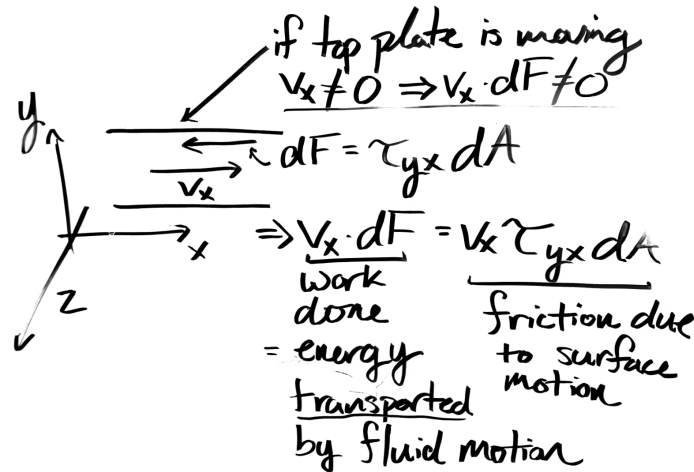 if top plate is moving
v_x ≠ 0 ⇒ v_x · dF ≠ 0
y
dF = τ_yx dA
v_x
x
⇒ v_x · dF = v_x τ_yx dA
z
work
done
= energy
transported
by fluid motion
friction due
to surface
motion